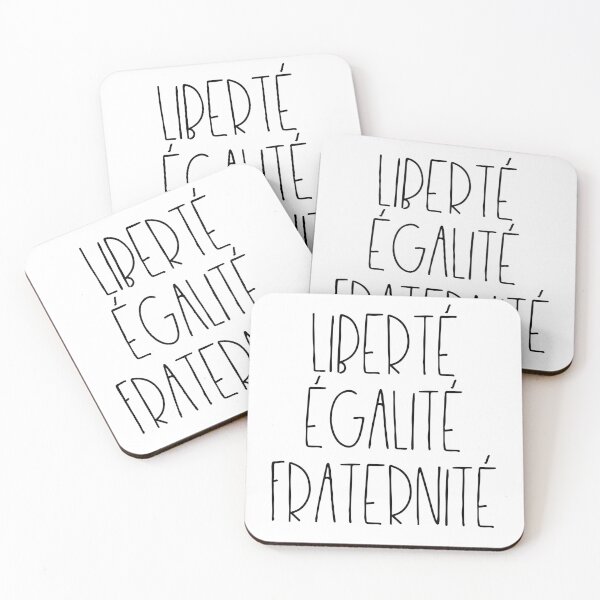 LIBERTÉ
ÉGALITÉ
LIBERTÉ
ÉGALITÉ
FRATERNITÉ
LIBERTÉ
ÉGALITÉ
FRATERN
LIBERTÉ
ÉGALITÉ
FRATERNITÉ